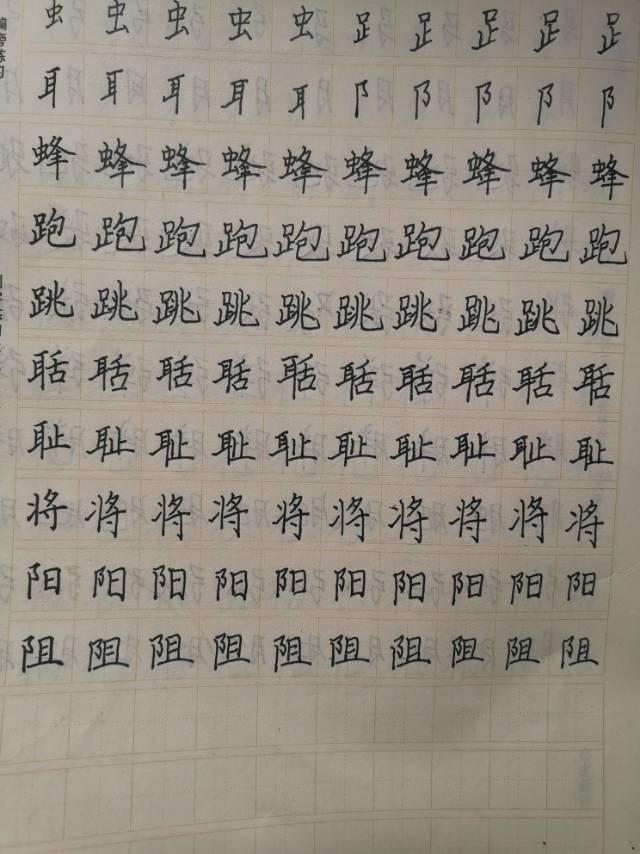 虫 虫 虫 虫 虫 𧾷 𧾷 𧾷 𧾷 𧾷
耳 耳 耳 耳 耳 阝 阝 阝 阝 阝
蜂 蜂 蜂 蜂 蜂 蜂 蜂 蜂 蜂 蜂
跑 跑 跑 跑 跑 跑 跑 跑 跑 跑
跳 跳 跳 跳 跳 跳 跳 跳 跳 跳
聒 聒 聒 聒 聒 聒 聒 聒 聒 聒
耻 耻 耻 耻 耻 耻 耻 耻 耻 耻
将 将 将 将 将 将 将 将 将 将
阳 阳 阳 阳 阳 阳 阳 阳 阳 阳
阻 阻 阻 阻 阻 阻 阻 阻 阻 阻